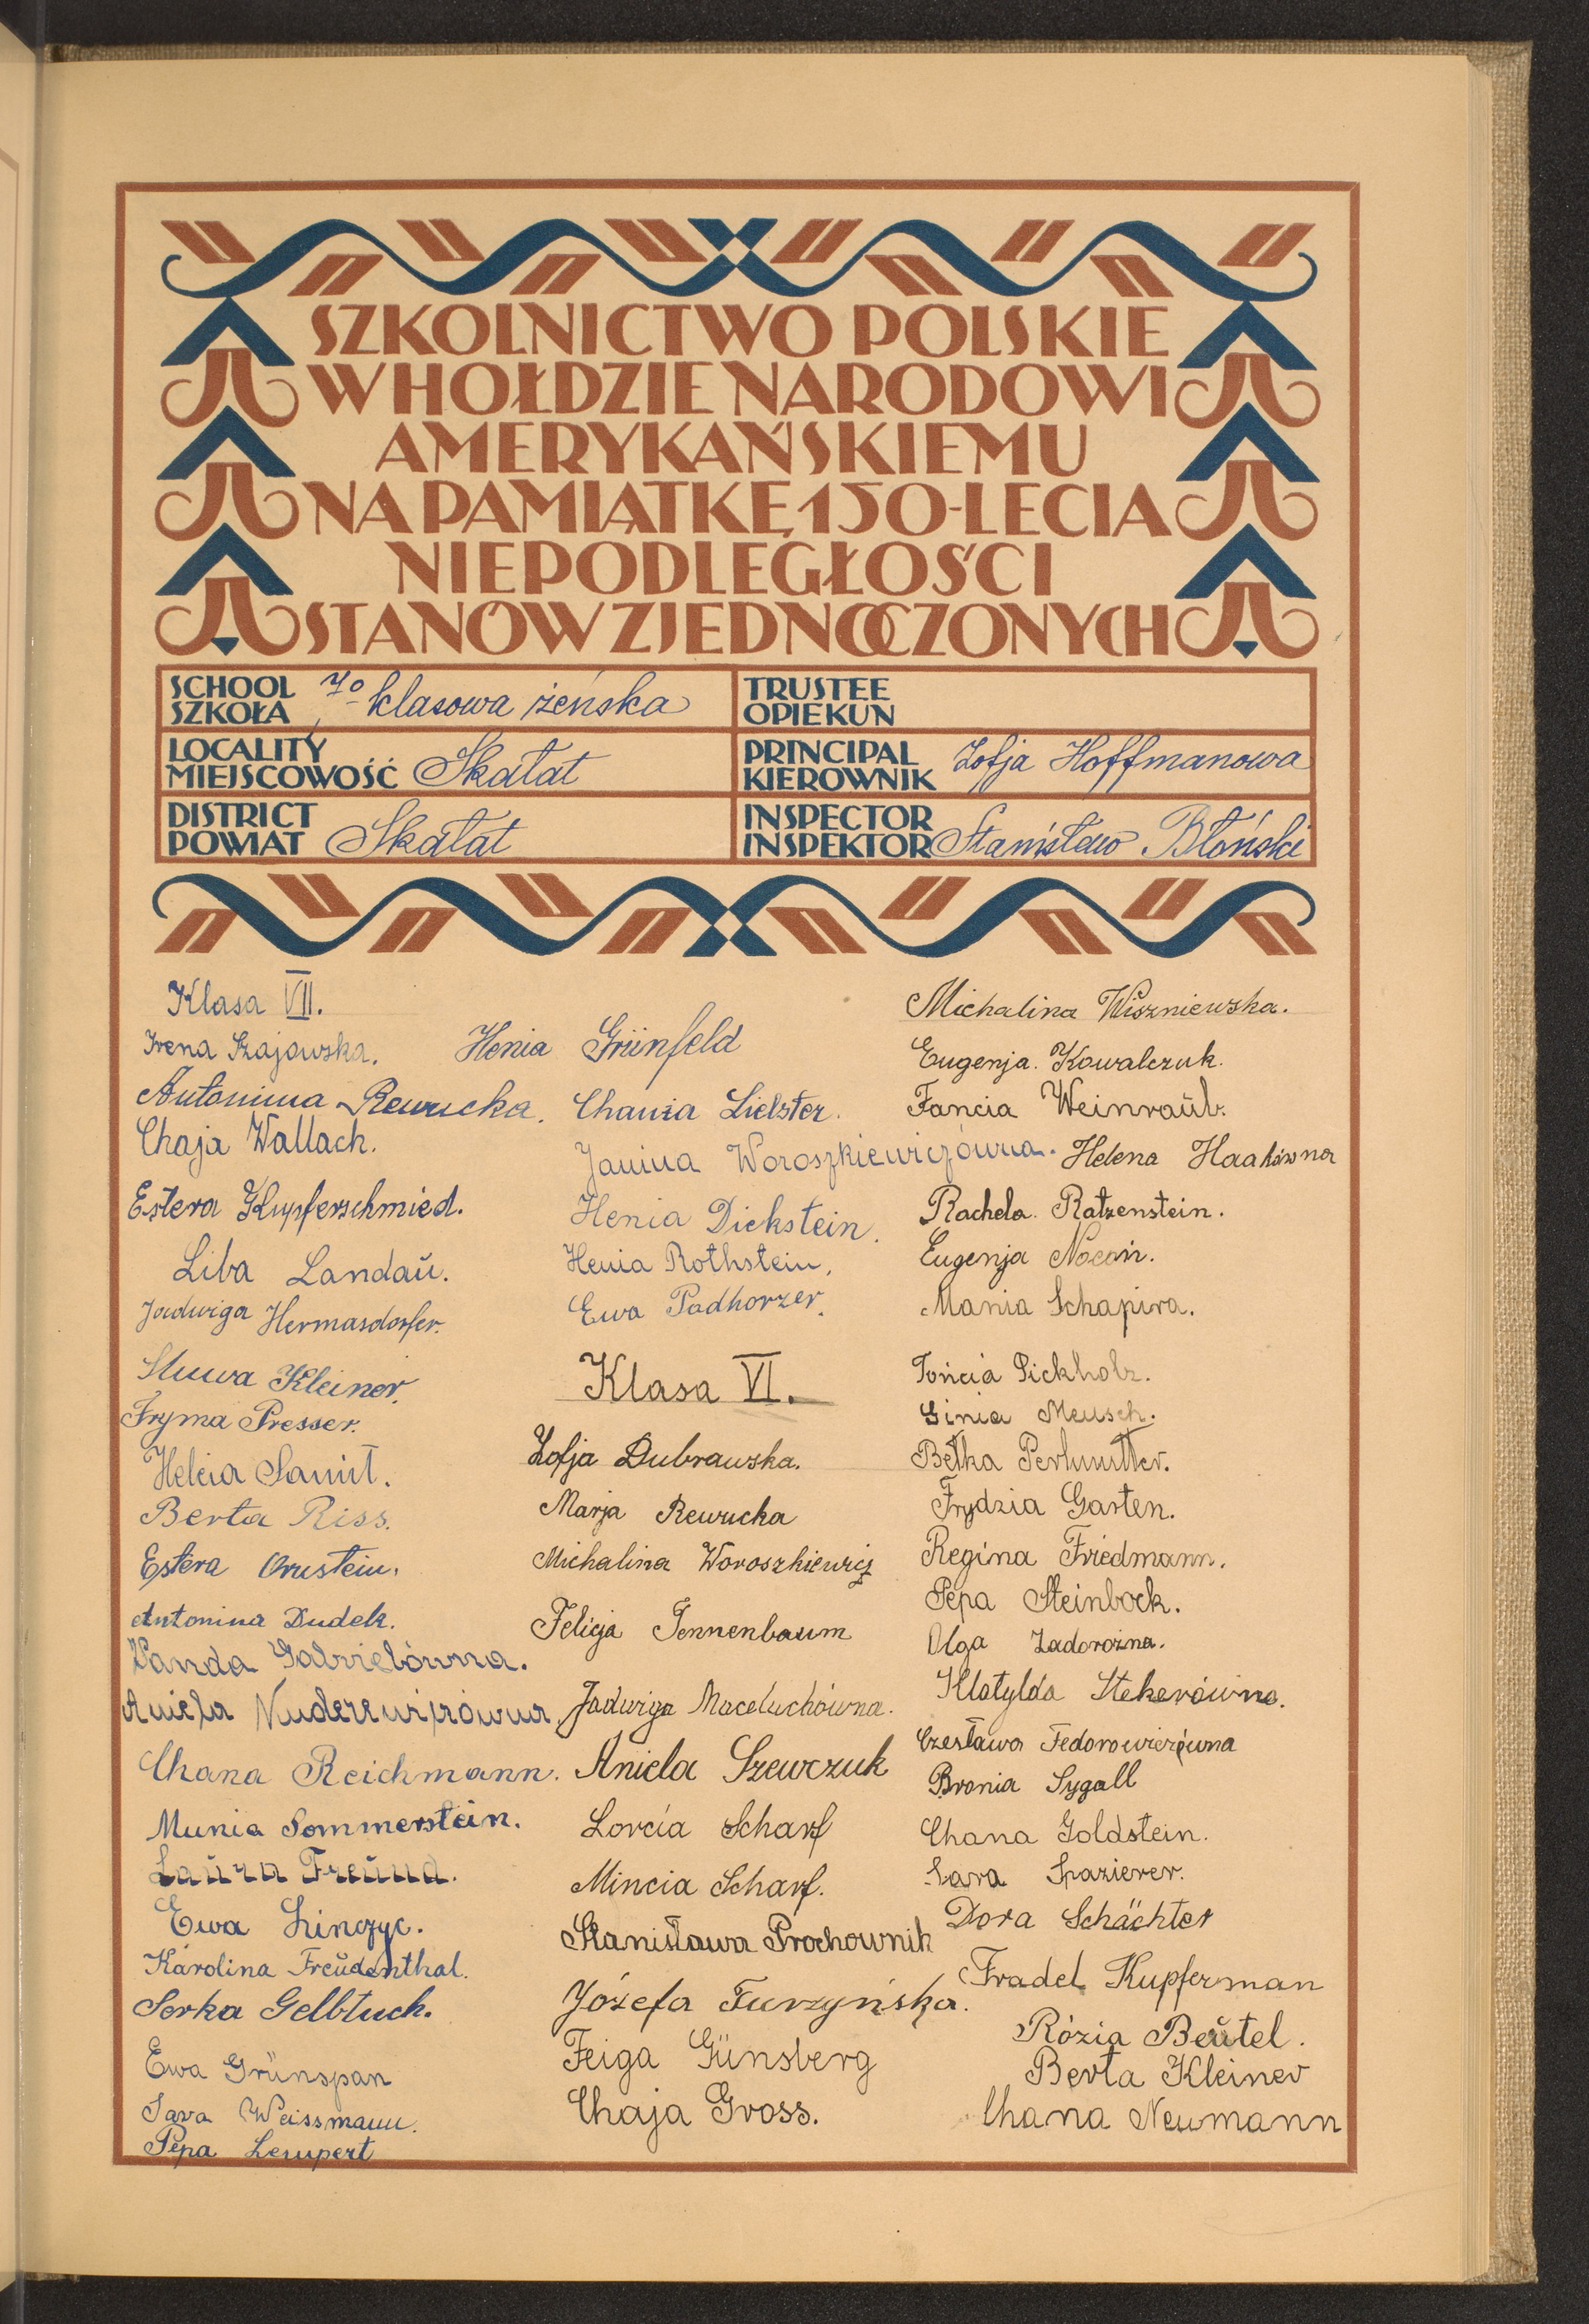 SZKOLNICTWO POLSKIE
W HOŁDZIE NARODOWI
AMERYKAŃSKIEMU
NA PAMIĄTKĘ 150-LECIA
NIEPODLEGŁOŚCI
STANÓW ZJEDNOCZONYCH
SCHOOL
SZKOŁA
7o klasowa żeńska
TRUSTEE
OPIEKUN
LOCALITY
MIEJSCOWOŚĆ
Skałat
PRINCIPAL
KIEROWNIK
Zofja Hoffmanowa
DISTRICT
POWIAT
Skałat
INSPECTOR
INSPEKTOR
Stanisław Błoński
Klasa VII.
Irena Szajowska.
Antonina Rewucka.
Chaja Wallach.
Estera Kupferschmied.
Liba Landau.
Jadwiga Hermasdorfer.
Kleiner.
Fryma Presser.
Helcia
Berta Riss.
Estera Ornstein.
Antonina Dudek.
Wanda Gabrielówna.
Aniela
Chana Reichmann.
Munia Sommerstein.
Laura Freund.
Ewa Linczyc.
Karolina Freudenthal.
Sorka Gelbtuch.
Ewa Grünspan
Sara Weissmann.
Pepa Lempert
Henia Grünfeld
Chania
Janina Woroszkiewiczówna.
Henia Dickstein.
Henia Rothstein.
Ewa Podhorzer.
Klasa VI.
Zofja Dubrawska.
Marja Rewucka
Michalina Woroszkiewicz
Felicja Tennenbaum
Jadwiga Maceluchówna.
Aniela Szewczuk
Lorcia Scharf
Mincia Scharf.
Stanisława Prochownik
Józefa Turzyńska.
Feiga Günsberg
Chaja Gross.
Michalina Wiszniewska.
Eugenja Kowalczuk.
Fancia Weinraub.
Helena Haakówna
Rachela Ratzenstein.
Eugenja
Mania Schapira.
Tońcia Pickholz.
Ginia Meusch.
Betka Perlmutter.
Frydzia Garten.
Regina Friedmann.
Pepa Steinbock.
Olga Zadorożna.
Matylda Stekerówna.
Czesława Fedorowiczówna
Bronia Sygall
Chana Goldstein.
Sara Spazierer.
Dora Schächter
Fradel Kupferman
Rózia Beutel.
Berta Kleiner
Chana Neumann